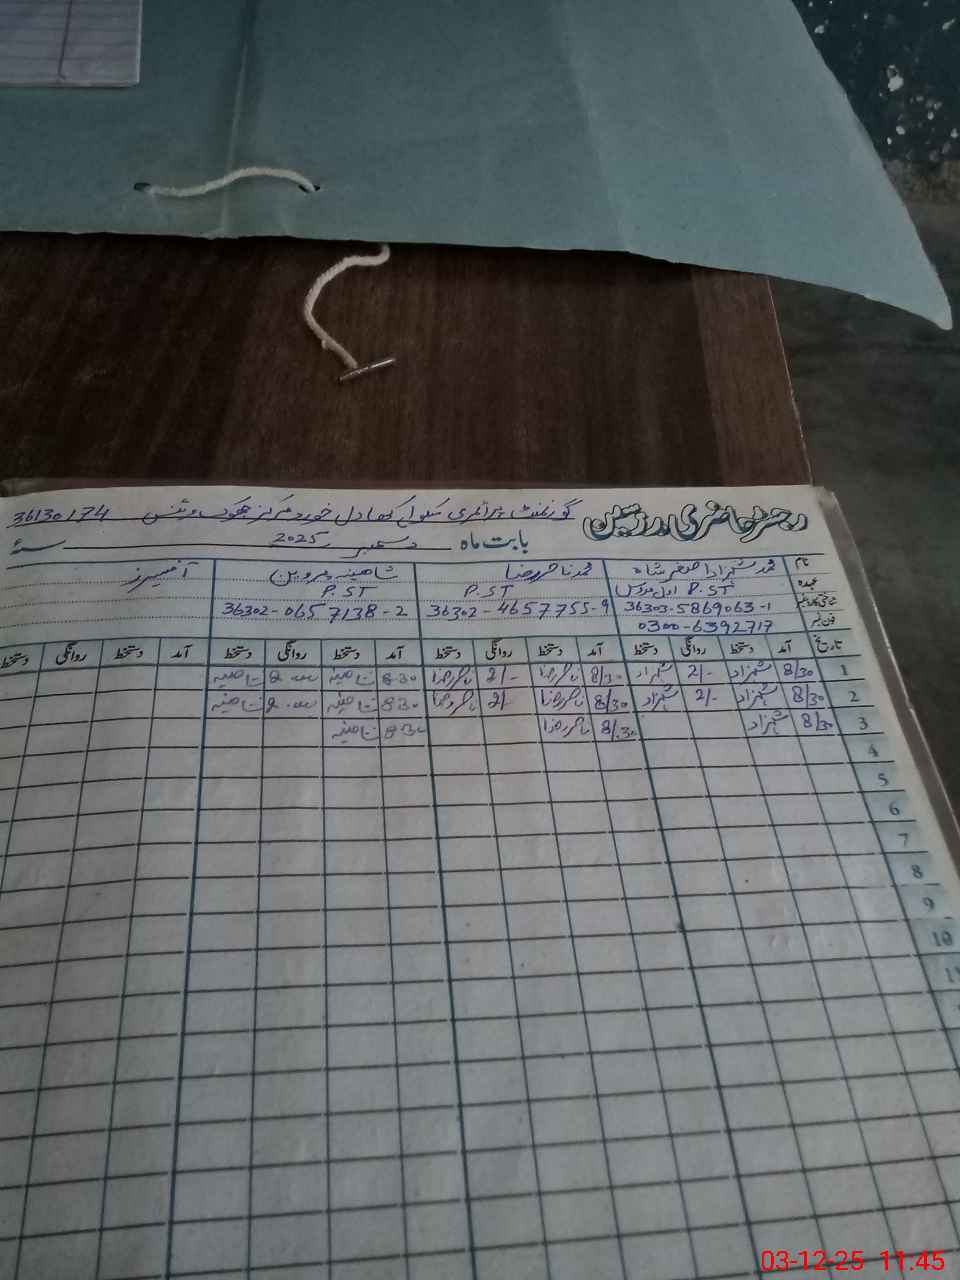 رجسٹر حاضری مدرسین گورنمنٹ پرائمری سکول کھادل خورد مرکز جھوک وینس 36130174
بابت ماہ دسمبر 2025 سنہ
نام محمد شہزاد اصغر شاہ محمد ناصر رضا شاہینہ پروین آفیسرز
عہدہ P.ST اول مدرس P.ST P.ST
شناختی کارڈ نمبر 36303-5869063-1 36302-4657755-9 36302-0657138-2
فون نمبر 0300-6392717
تاریخ آمد دستخط روانگی دستخط آمد دستخط روانگی دستخط آمد دستخط روانگی دستخط آمد دستخط روانگی دستخط
1 8/30 شہزاد 2/- شہزاد 8/30 ناصر رضا 2/- ناصر رضا 8-30 شاہینہ شاہینہ
2 8/30 شہزاد 2/- شہزاد 8/30 ناصر رضا 2/- ناصر رضا 830 شاہینہ شاہینہ
3 8/30 شہزاد 8/30 ناصر رضا 8-30 شاہینہ
4
5
6
7
8
9
10
03-12-25 11.45